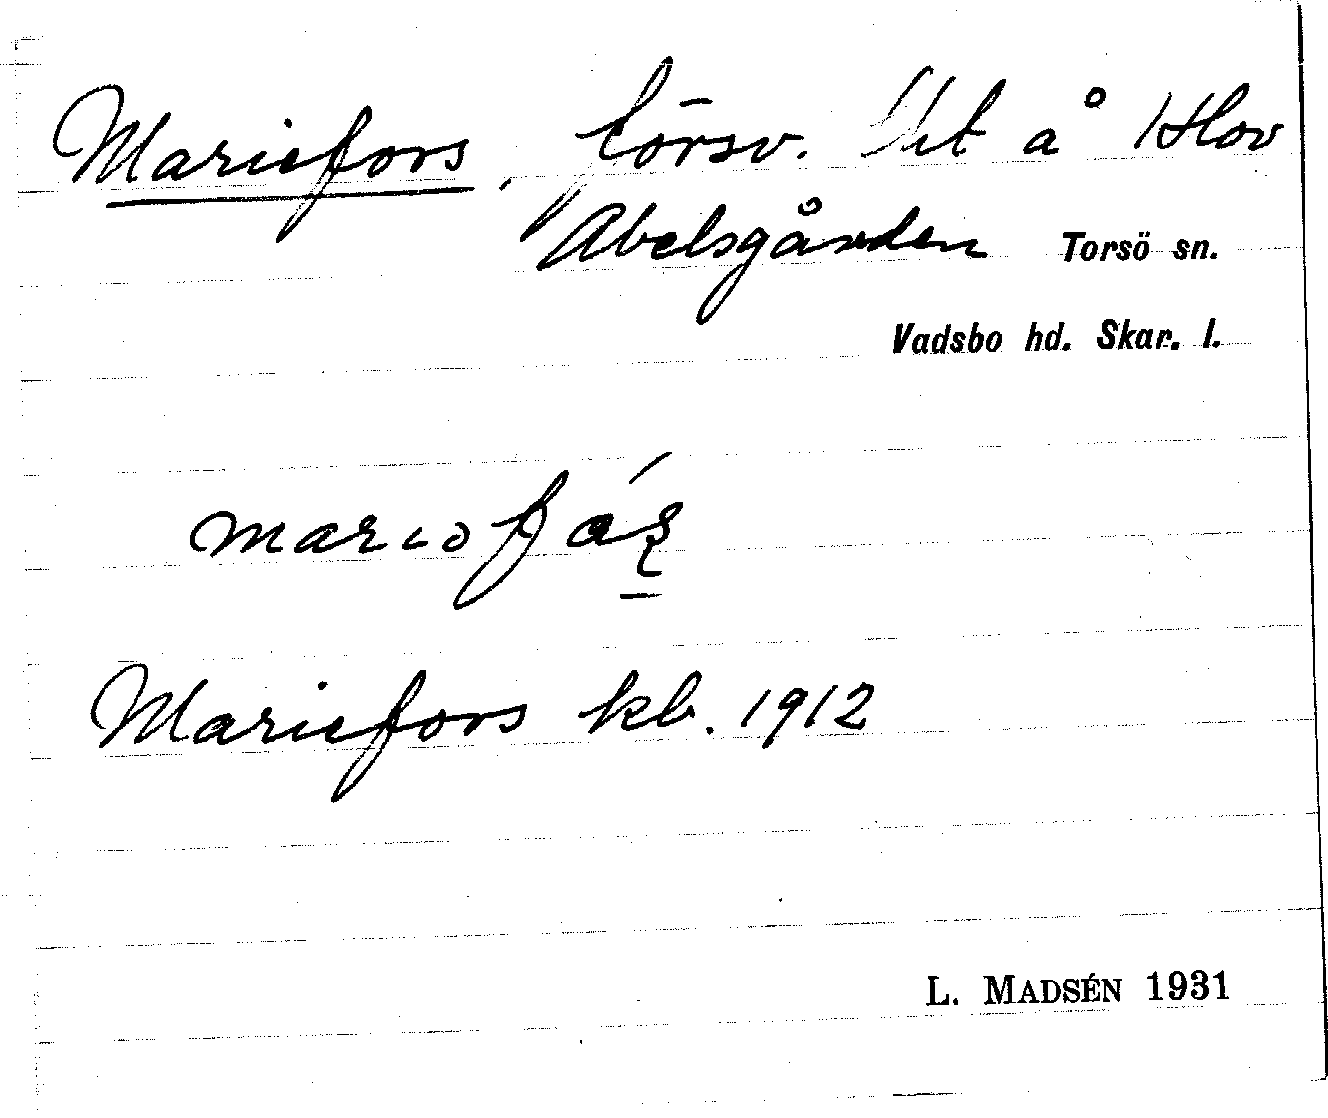 Mariefors, försv. å 1 Hov
Abelsgården Torsö sn.
Vadsbo hd. Skar. l.
mariofás
Mariefors kb. 1912
L. MADSÉN 1931